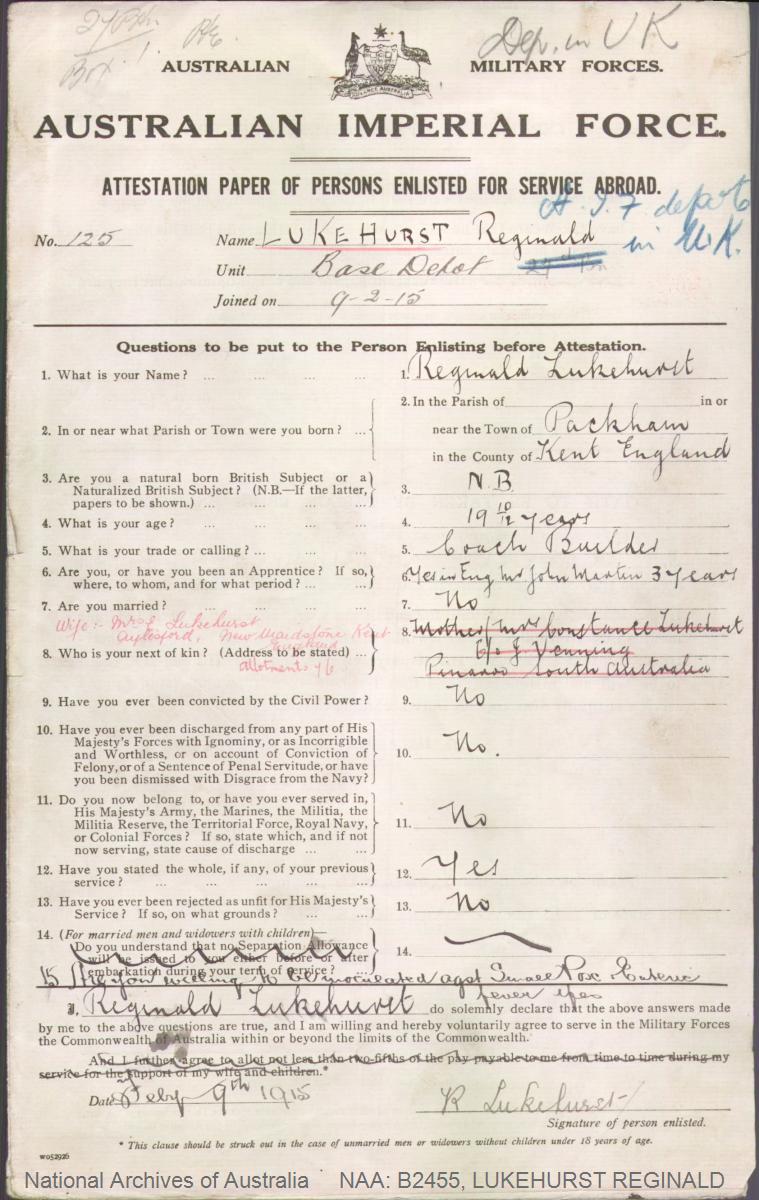 Dep. in UK
Box 1.
AUSTRALIAN MILITARY FORCES.
AUSTRALIAN IMPERIAL FORCE.
ATTESTATION PAPER OF PERSONS ENLISTED FOR SERVICE ABROAD.
A.I.F depots
in U.K.
No. 125 Name LUKEHURST Reginald
Unit Base Depot
Joined on 9-2-15
Questions to be put to the Person Enlisting before Attestation.
1. What is your Name? ... ... ... ... 1. Reginald Lukehurst
2. In or near what Parish or Town were you born? ... 2. In the Parish of in or
near the Town of Packham
in the County of Kent England
3. Are you a natural born British Subject or a
Naturalized British Subject? (N.B.—If the latter,
papers to be shown.) ... ... ... ... 3. N.B.
4. What is your age? ... ... ... ... 4. 19 10/12 years
5. What is your trade or calling? ... ... ... 5. Coach Builder
6. Are you, or have you been an Apprentice? If so,
where, to whom, and for what period? ... ... 6. Yes in Eng Mr John Martin 3 years
7. Are you married? ... ... ... ... 7. No
Wife :- Mrs E Lukehurst
Aylesford, New Maidstone Kent
England
8. Who is your next of kin? (Address to be stated) ... 8. Mother/Mrs Constance Lukehurst
C/o J Venning
Pinaroo South Australia
allotments
9. Have you ever been convicted by the Civil Power? 9. No
10. Have you ever been discharged from any part of His
Majesty's Forces with Ignominy, or as Incorrigible
and Worthless, or on account of Conviction of
Felony, or of a Sentence of Penal Servitude, or have
you been dismissed with Disgrace from the Navy? 10. No.
11. Do you now belong to, or have you ever served in,
His Majesty's Army, the Marines, the Militia, the
Militia Reserve, the Territorial Force, Royal Navy,
or Colonial Forces? If so, state which, and if not
now serving, state cause of discharge ... ... 11. No
12. Have you stated the whole, if any, of your previous
service? ... ... ... ... ... 12. Yes
13. Have you ever been rejected as unfit for His Majesty's
Service? If so, on what grounds? ... ... 13. No
14. (For married men and widowers with children)—
Do you understand that no Separation Allowance
will be issued to you either before or after
embarkation during your term of service? ... 14.
15 Are you willing to be inoculated agst Small Pox Enteric
fever yes
I, Reginald Lukehurst do solemnly declare that the above answers made
by me to the above questions are true, and I am willing and hereby voluntarily agree to serve in the Military Forces
the Commonwealth of Australia within or beyond the limits of the Commonwealth.
And I further agree to allot not less than two-fifths of the pay payable to me from time to time during my
service for the support of my wife and children.*
Date Feby 9th 1915
R Lukehurst
Signature of person enlisted.
* This clause should be struck out in the case of unmarried men or widowers without children under 18 years of age.
W052926
National Archives of Australia NAA: B2455, LUKEHURST REGINALD